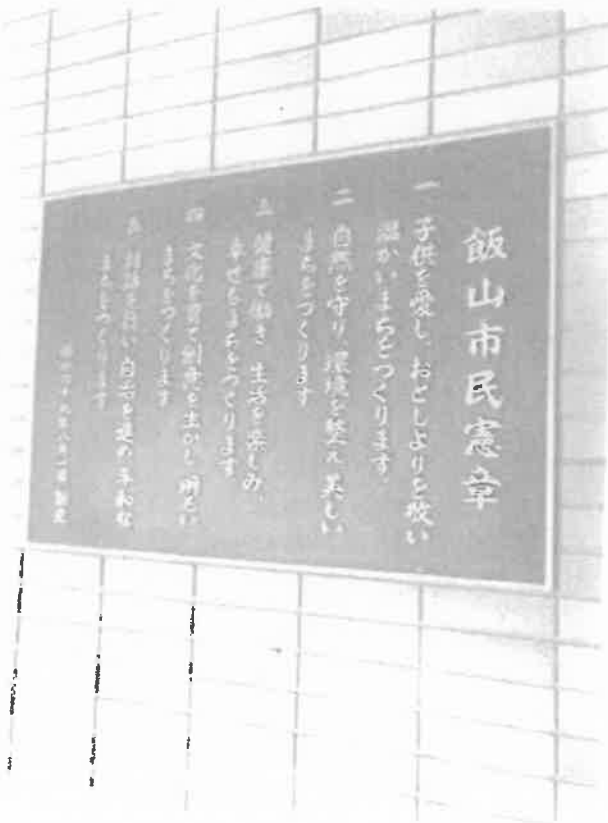 飯山市民憲章
一 子供を愛し、おとしよりを敬い
温かいまちをつくります。
二 自然を守り、環境を整え、美しい
まちをつくります
三 健康で働き、生活を楽しみ、
幸せなまちをつくります。
四 文化を育て、制度を生かし、明るい
まちをつくります
五 対話を行い、自治を進め、平和な
まちをつくります
昭和四十九年八月一日 制定